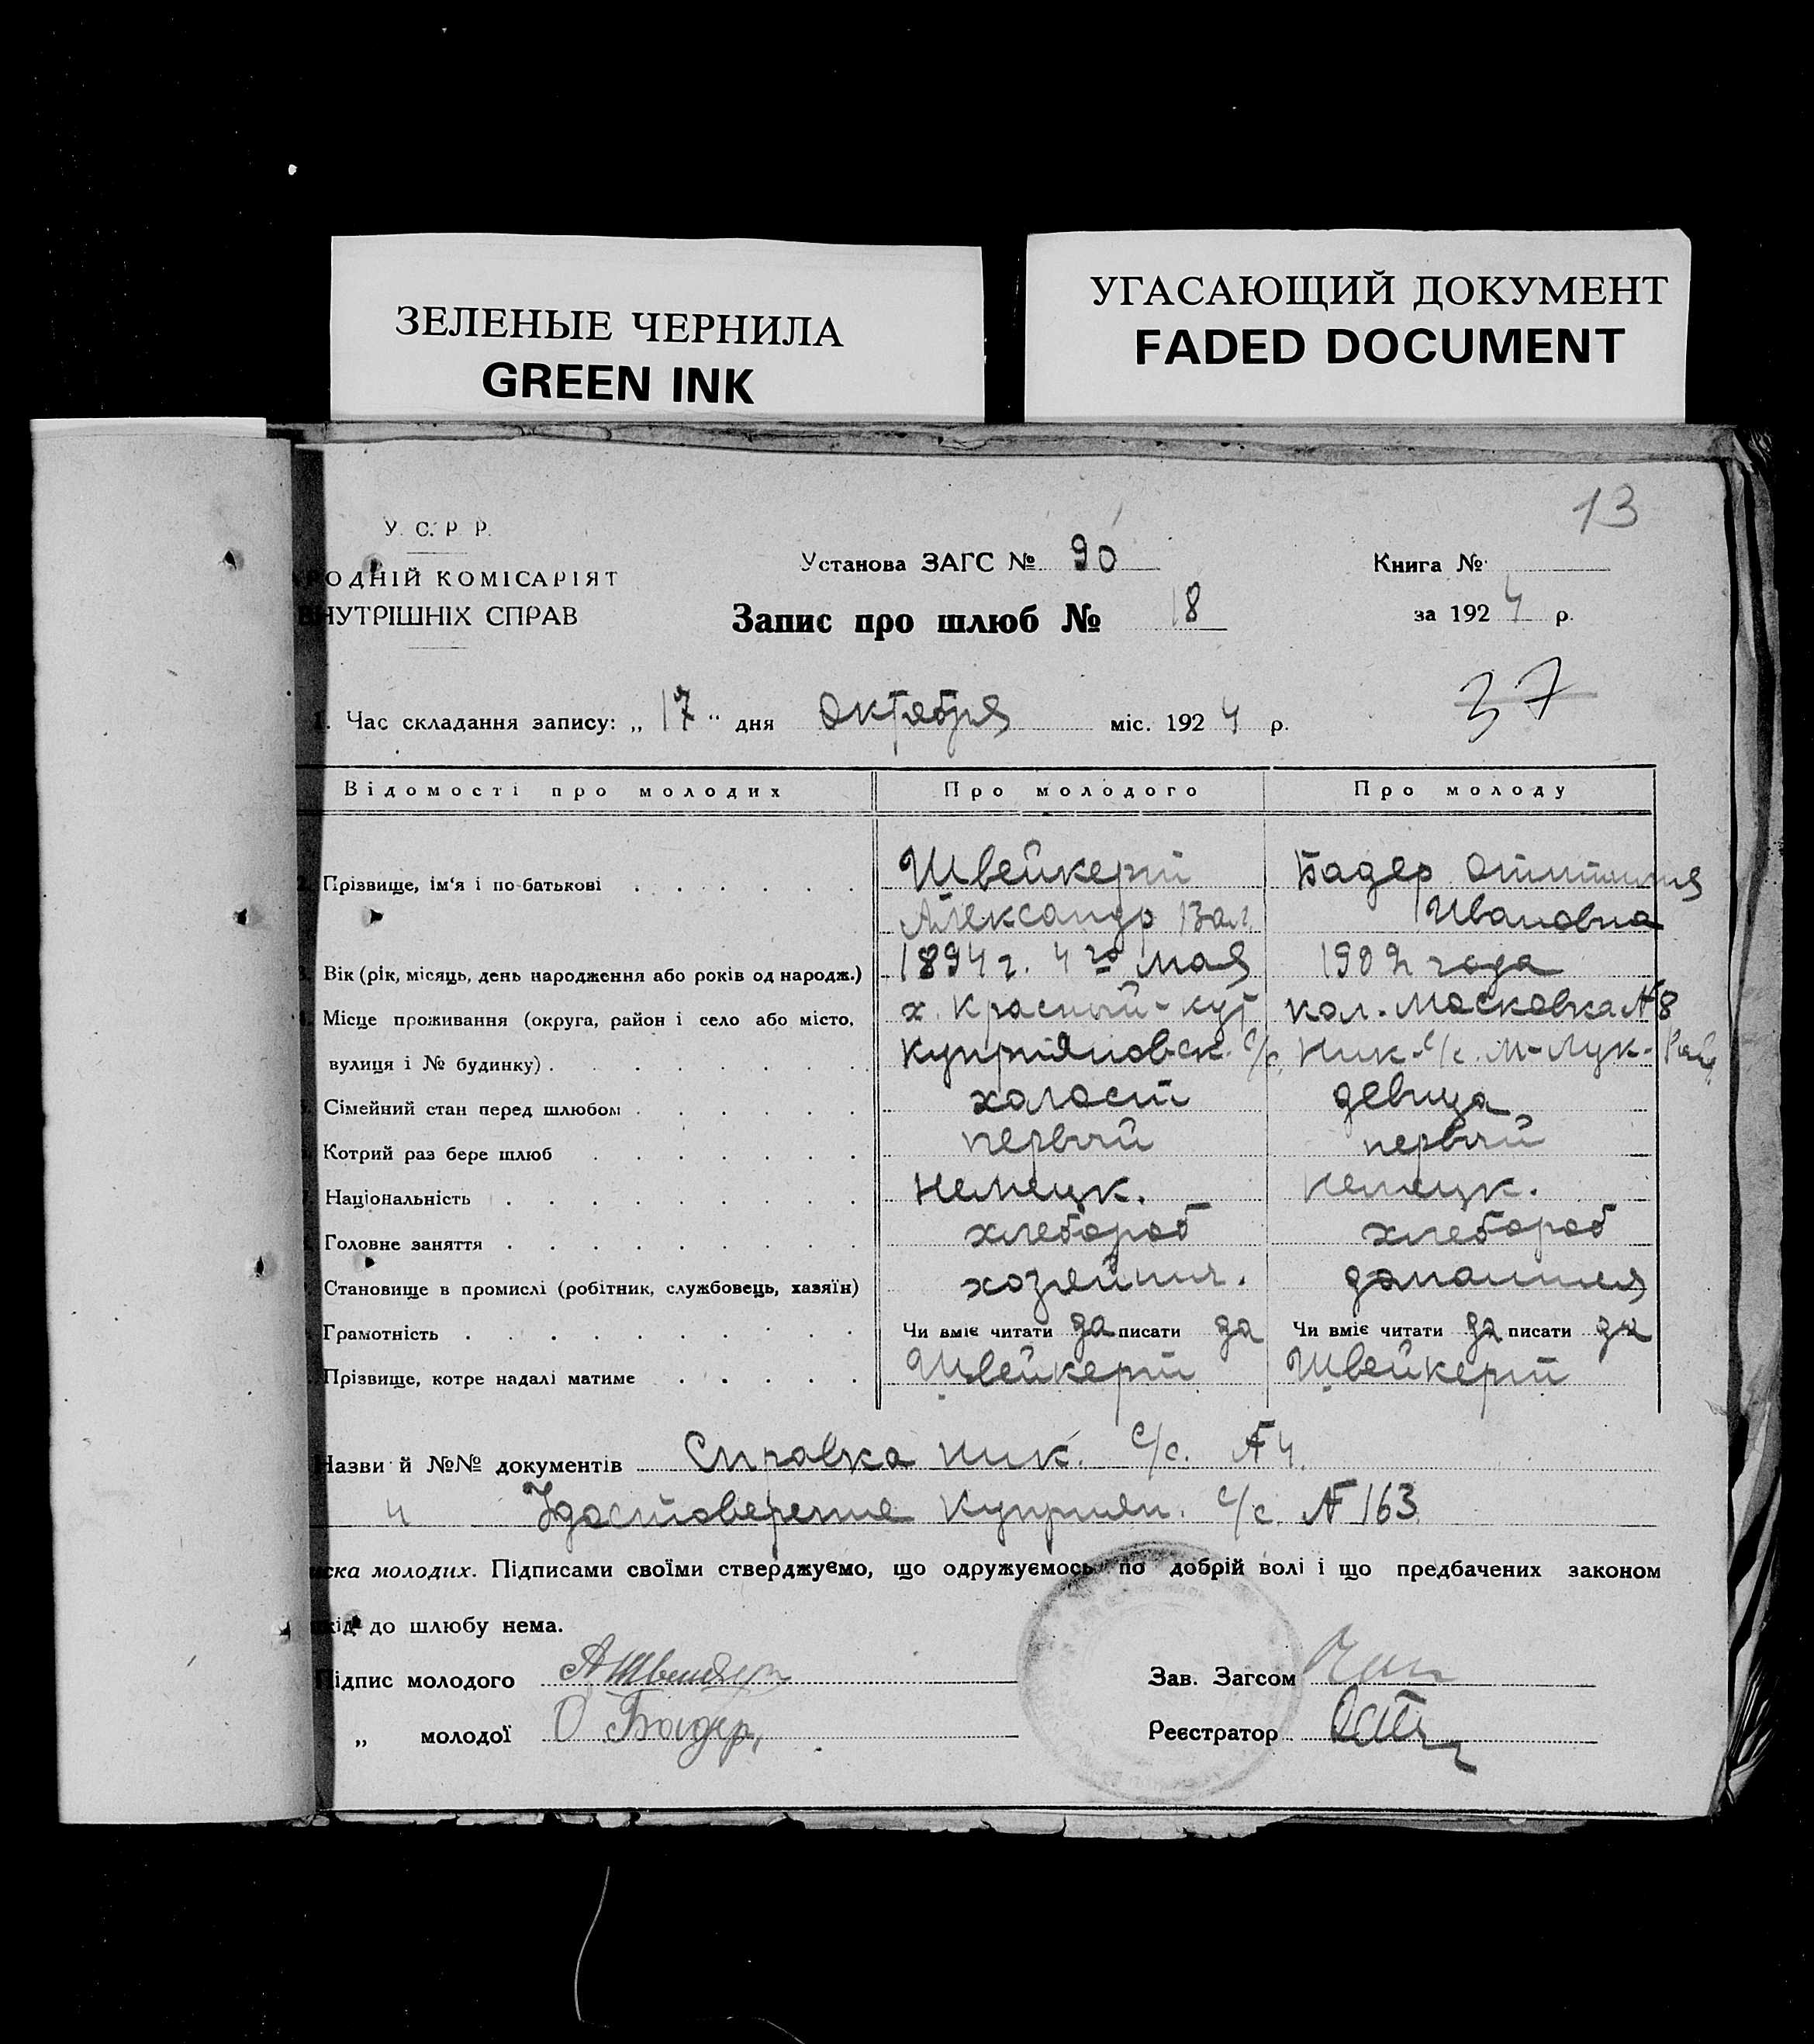 ЗЕЛЕНЫЕ ЧЕРНИЛА
GREEN INK
УГАСАЮЩИЙ ДОКУМЕНТ
FADED DOCUMENT
13
У. С. Р Р.
РОДНІЙ КОМІСАРІЯТ
НУТРІШНІХ СПРАВ
Установа ЗАГС № 90
Книга №
Запис про шлюб № 18
за 1924 р.
37
1. Час складання запису: „ 17 “ дня Октября міс. 1924 р.
Відомості про молодих Про молодого Про молоду
2. Прізвище, ім'я і по-батькові Швейкерт Бадер
Александр Вал. Ивановна
3. Вік (рік, місяць, день народження або років од народж.) 1894 г. 4го мая 1902 года
Місце проживання (округа, район і село або місто, х. Красный-кут кол. Московка №8
вулиця і № будинку) Куприяновск. с/с. Ник. с/с. М-Лук. Рай.
Сімейний стан перед шлюбом холост девица
Котрий раз бере шлюб первый первый
Національність немецк. немецк.
Головне заняття хлебороб хлебороб
Становище в промислі (робітник, службовець, хазяїн) хозяйнич. домашняя
Грамотність Чи вміє читати да писати да Чи вміє читати да писати да
Прізвище, котре надалі матиме Швейкерт Швейкерт
Назви й №№ документів Справка Ник. с/с. №4.
и Удостоверение Куприян. с/с. № 163
иска молодих. Підписами своїми стверджуємо, що одружуємось по добрій волі і що предбачених законом
кід до шлюбу нема.
Підпис молодого А Швейкерт
Зав. Загсом
„ молодої О Бадер,
Реєстратор